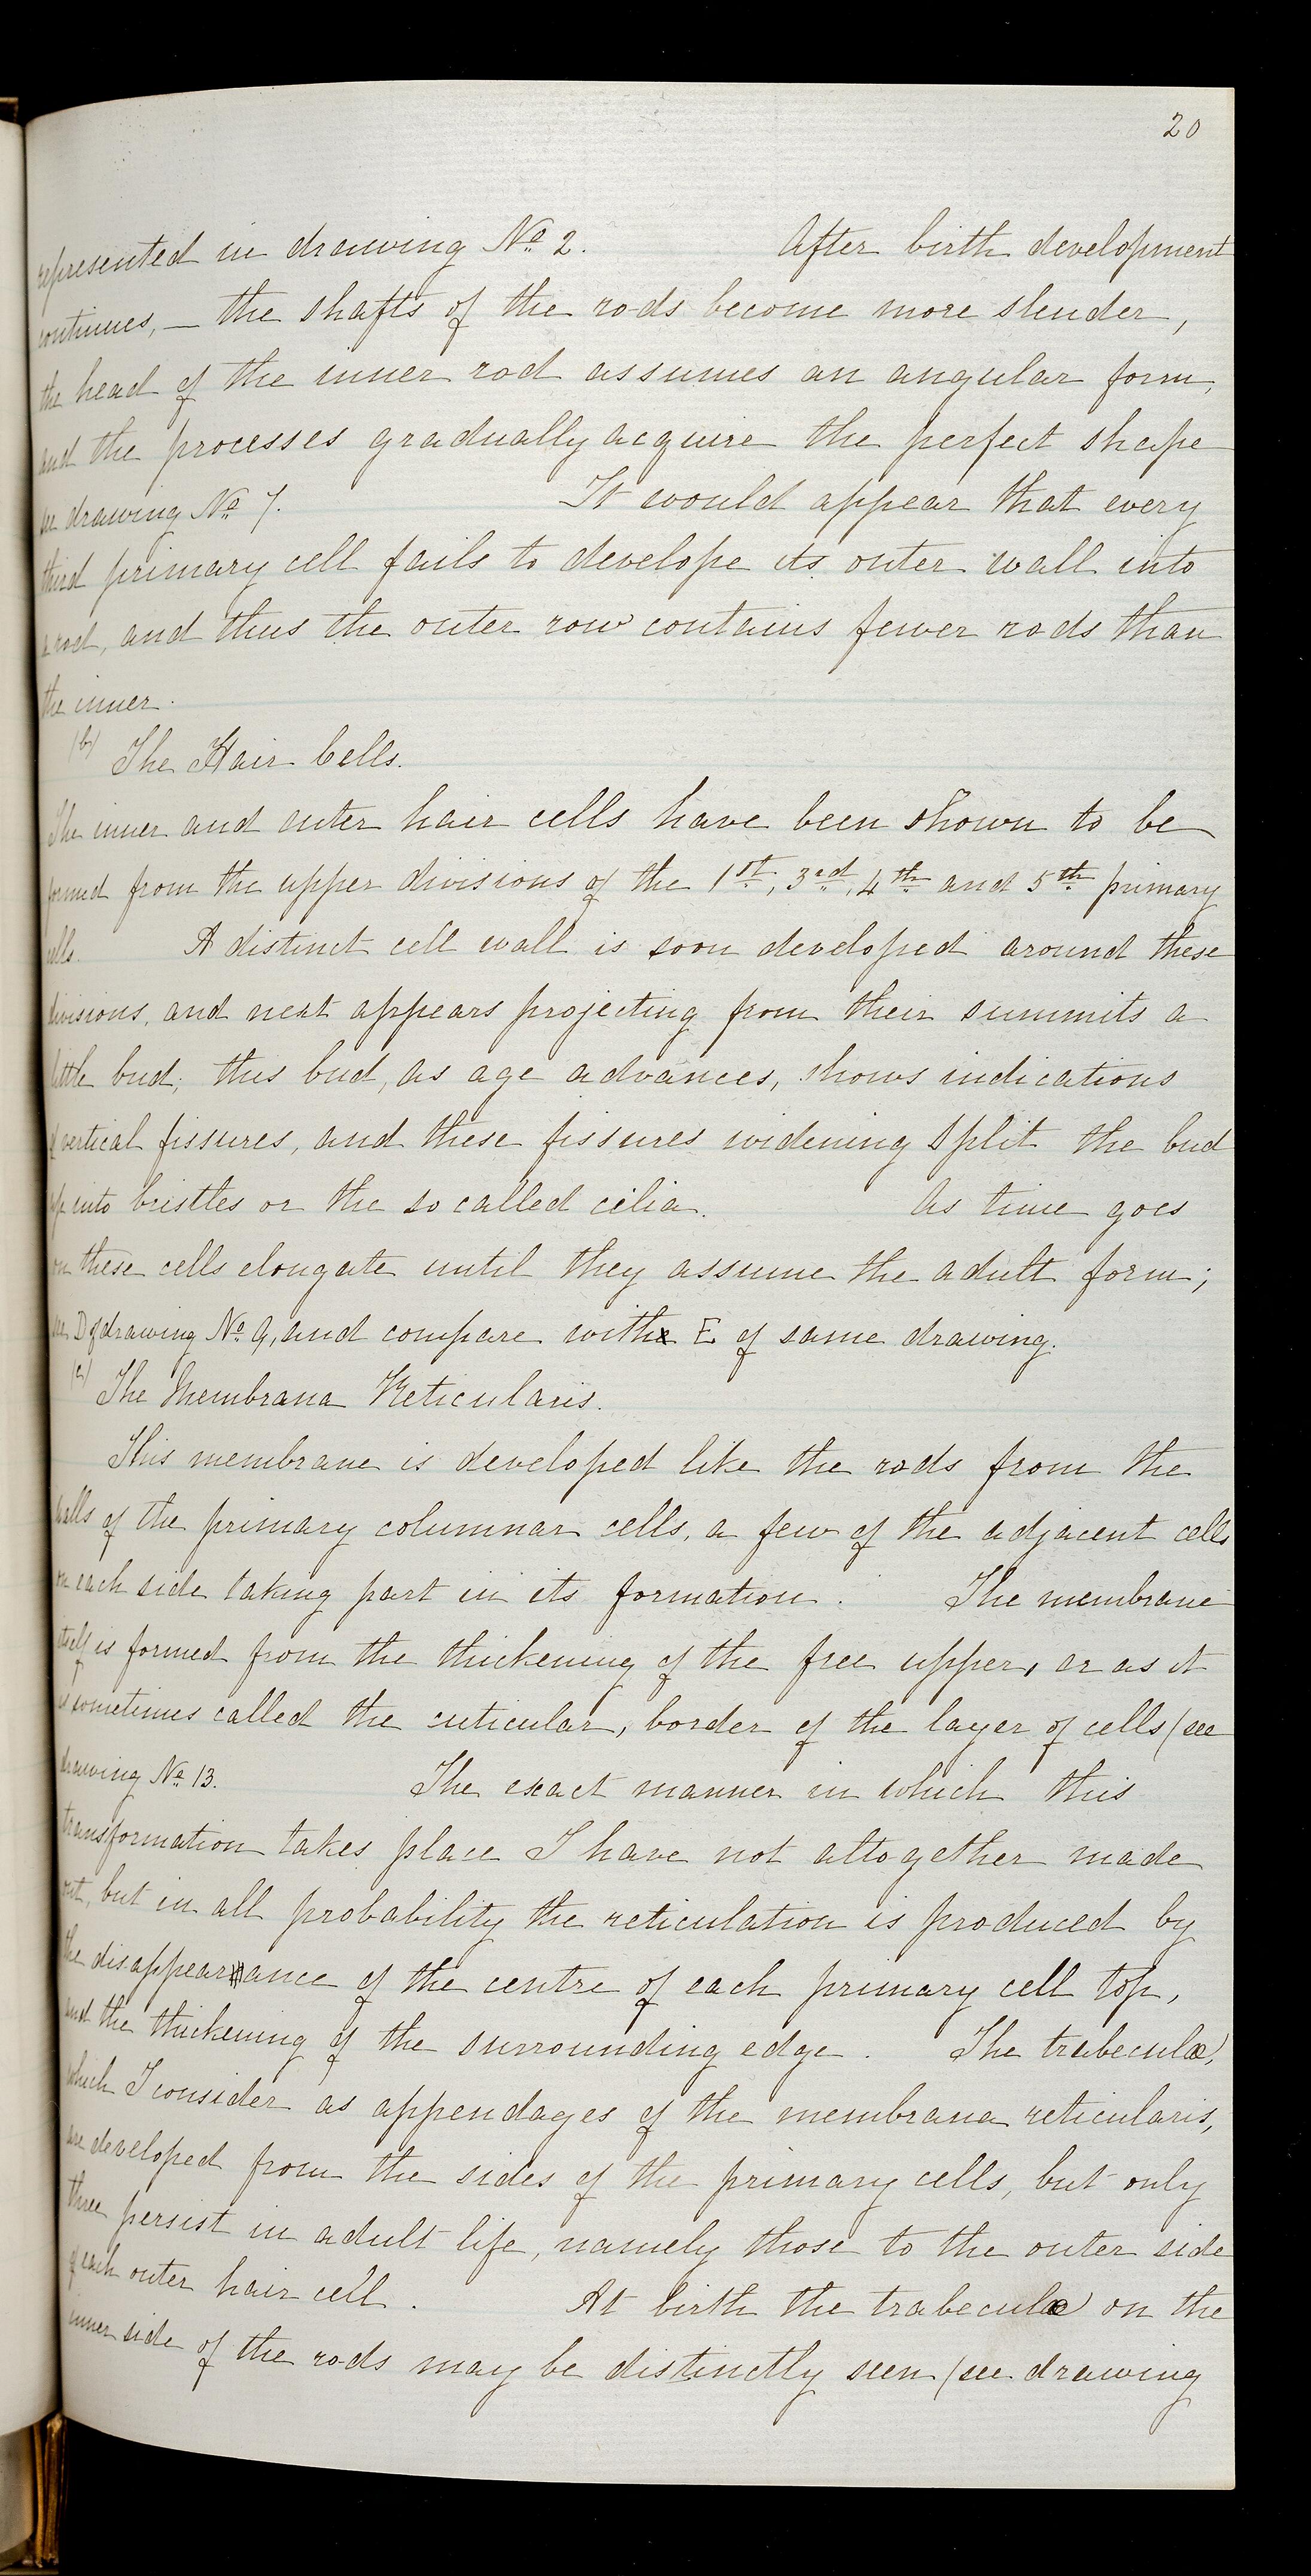 20
represented in drawing No 2. After birth development
continues, — the shafts of the rods become more slender,
the head of the inner rod assumes an angular form,
and the processes gradually acquire the perfect shape
see drawing No 7. It would appear that every
third primary cell fails to develope its outer wall into
a rod, and thus the outer row contains fewer rods than
the inner.
(b) The Hair Cells.
The inner and outer hair cells have been shown to be
formed from the upper divisions of the 1st, 3rd, 4th and 5th primary
cells. A distinct cell wall is soon developed around these
divisions, and next appears projecting from their summits a
little bud; this bud, as age advances, shows indications
of vertical fissures, and these fissures widening split the bud
up into bristles or the so called cilia. As time goes
on these cells elongate until they assume the adult form;
see D of drawing No 9, and compare with E of same drawing.
(c) The Membrana Reticularis.
This membrane is developed like the rods from the
walls of the primary columnar cells, a few of the adjacent cells
on each side taking part in its formation. The membrane
itself is formed from the thickening of the free upper, or as it
is sometimes called the cuticular, border of the layer of cells (see
drawing No 13. The exact manner in which this
transformation takes place I have not altogether made
out, but in all probability the reticulation is produced by
the disappearance of the centre of each primary cell top,
and the thickening of the surrounding edge. The trabeculæ,
which I consider as appendages of the membrana reticularis,
are developed from the sides of the primary cells, but only
three persist in adult life, namely those to the outer side
of each outer hair cell. At birth the trabeculæ on the
inner side of the rods may be distinctly seen (see drawing